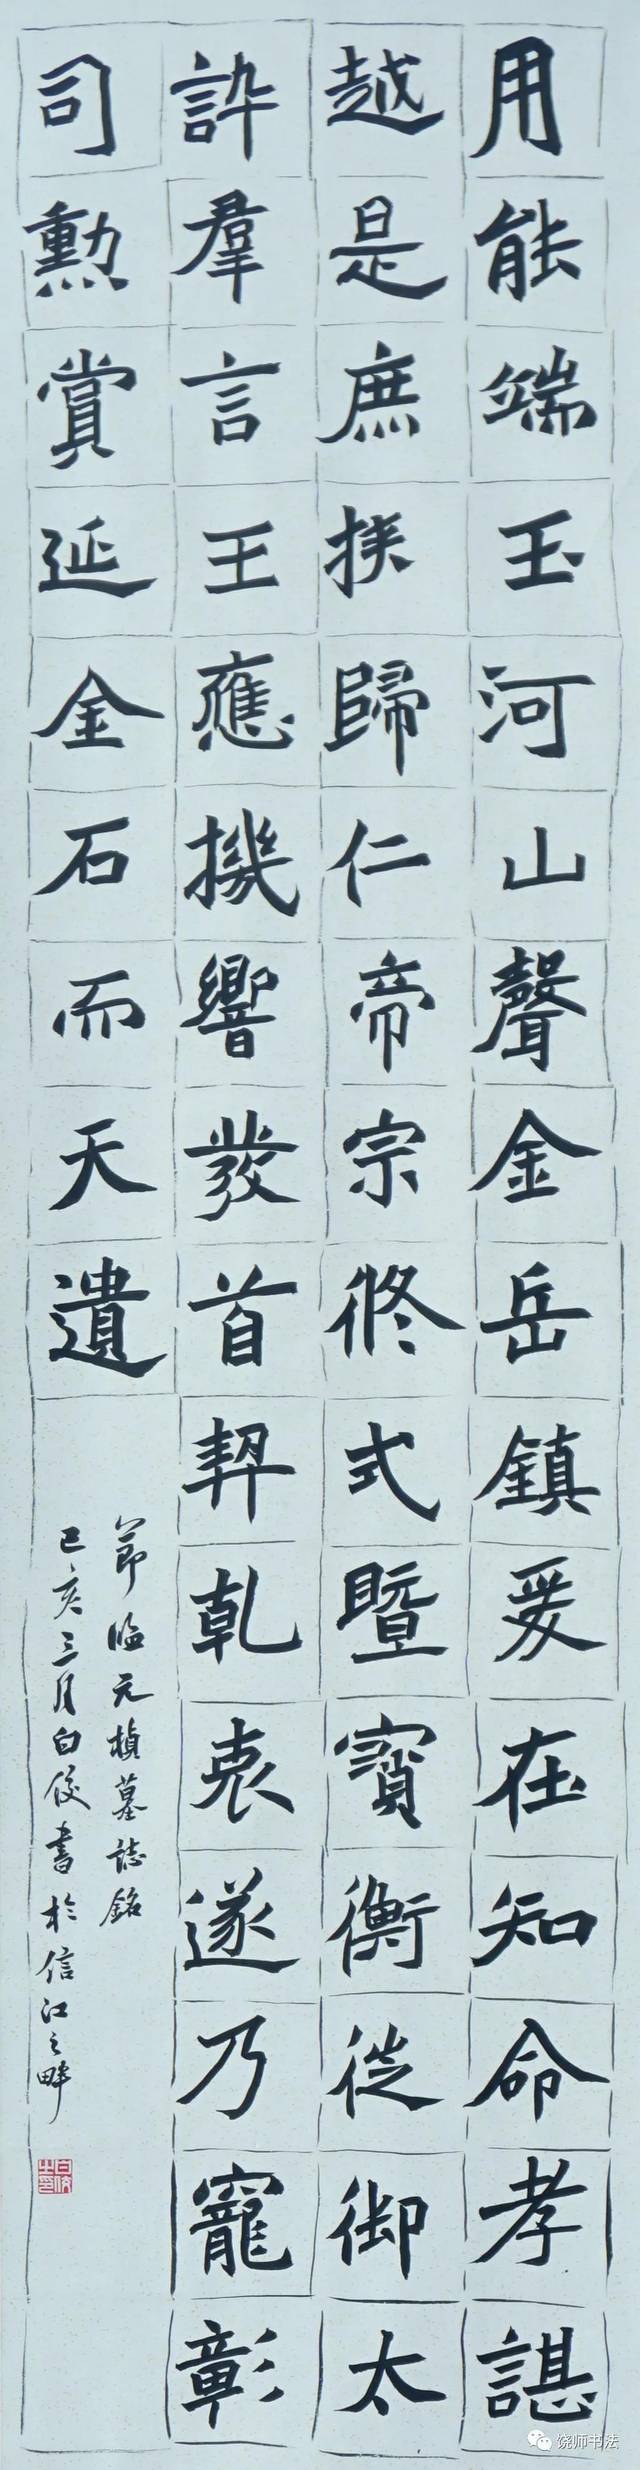 用能端玉河山聲金岳鎮爰在知命孝諶
越是庶族歸仁帝宗攸式暨寳衡徙御太
訊羣言王應機響發首契乾衷遂乃寵彰
司勳賞延金石而天遺
節臨元楨墓誌銘
己亥三月白俊書於信江之畔
饶师书法